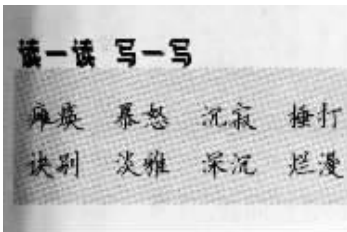 读一读 写一写
瘫痪 暴怒 沉寂 捶打
诀别 淡雅 深沉 烂漫